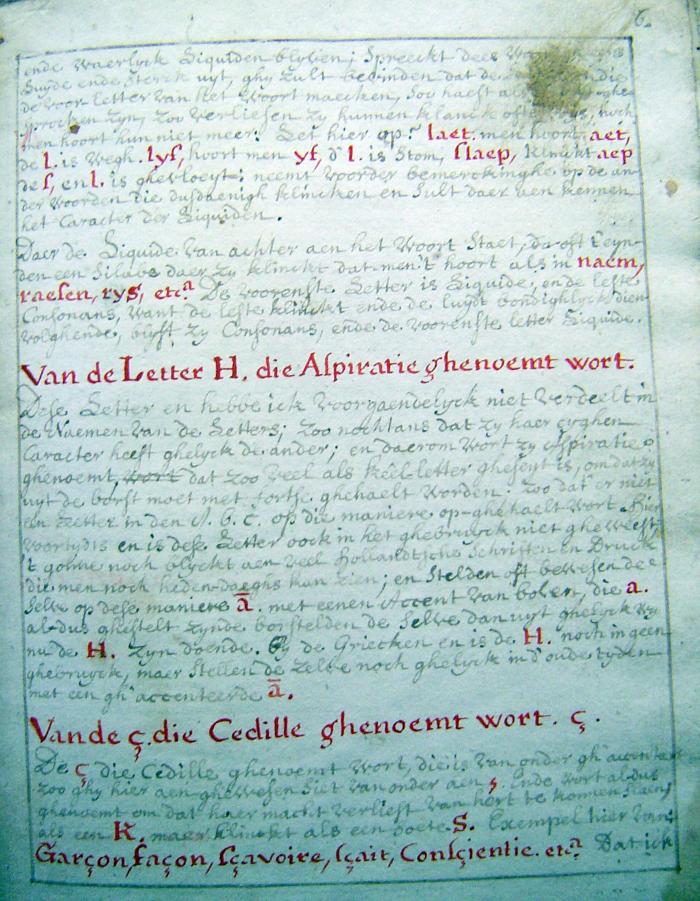 6.
ende waerlyck Liquiden blyven; Spreeckt dees
Suyde ende sterck uyt, ghy zult bevinden dat de die
de voor letter van het woort maecken, soo haest als
sprocken zyn, zoo verliesen zy hunnen klanck noch
men hoort hun niet meer. Let hier op: laet. men hoort aet,
de l. is wegh. lys, hoort men ys, d'l. is Stom, slaep, klinckt aep
de s, en l. is ghevloeyt; neemt voorder bemerckinghe op de an
der woorden die dusdaenigh klincken en sult daer aen kennen
het Caracter der Liquiden.
Daer de Liquide van achter aen het woort Staet, da oft t'eyn
den een Silabe daer zy klinckt dat men't hoort als in naem,
raesen, rys, etc.a De voorenste Letter is Liquide, ende leste
Consonans, want de leste klinckt ende de luydt bondighlyck dien
volghende, blyft zy Consonans, ende de voorenste letter Liquide.
Van de Letter H. die Aspiratie ghenoemt wort.
Dese Letter en hebbe ick voorgaendelyck niet verdeelt in
de Naemen van de Letters; zoo nochtans dat zy haer eyghen
Caracter heeft ghelyck de ander; en daerom wort zy Aspiratie
ghenoemt, wort dat zoo veel als keel-letter gheseyt is, om dat zy
uyt de borst moet met fortse ghehaelt worden. zoo dat er niet
een Letter in den A. b. c. op die maniere op-ghehaelt wort. Hier
voortydts en is dese Letter oock in het ghebruyck niet gheweest,
't gonne noch blyckt aen veel Hollandtsche Schriften en Druck
die men noch heden-daeghs kan zien; en Stelden oft bewesen de
selve op dese maniere ā. met eenen Accent van boven, die a.
al-dus ghestelt zynde borstelden de Selve dan uyt ghelyck wy
nu de H. zyn doende. By de Griecken en is de H. noch in geen
ghebruyck, maer Stellen de zelve noch ghelyck in d'oude tyden
met een gh'accenteerde ā.
Van de ç. die Cedille ghenoemt wort. ç.
De ç die Cedille ghenoemt wort, die is van onder gh'accenteert
zoo ghy hier aen-ghewesen Siet van onder aen ç. Ende wort al-dus
ghenoemt om dat haer macht verliest van hert te konnen slaen
als een K, maer klinckt als een soete S. Exempel hier van
Garçon, façon, sçavoire, sçait, Consçientie. etc.a Dat ick